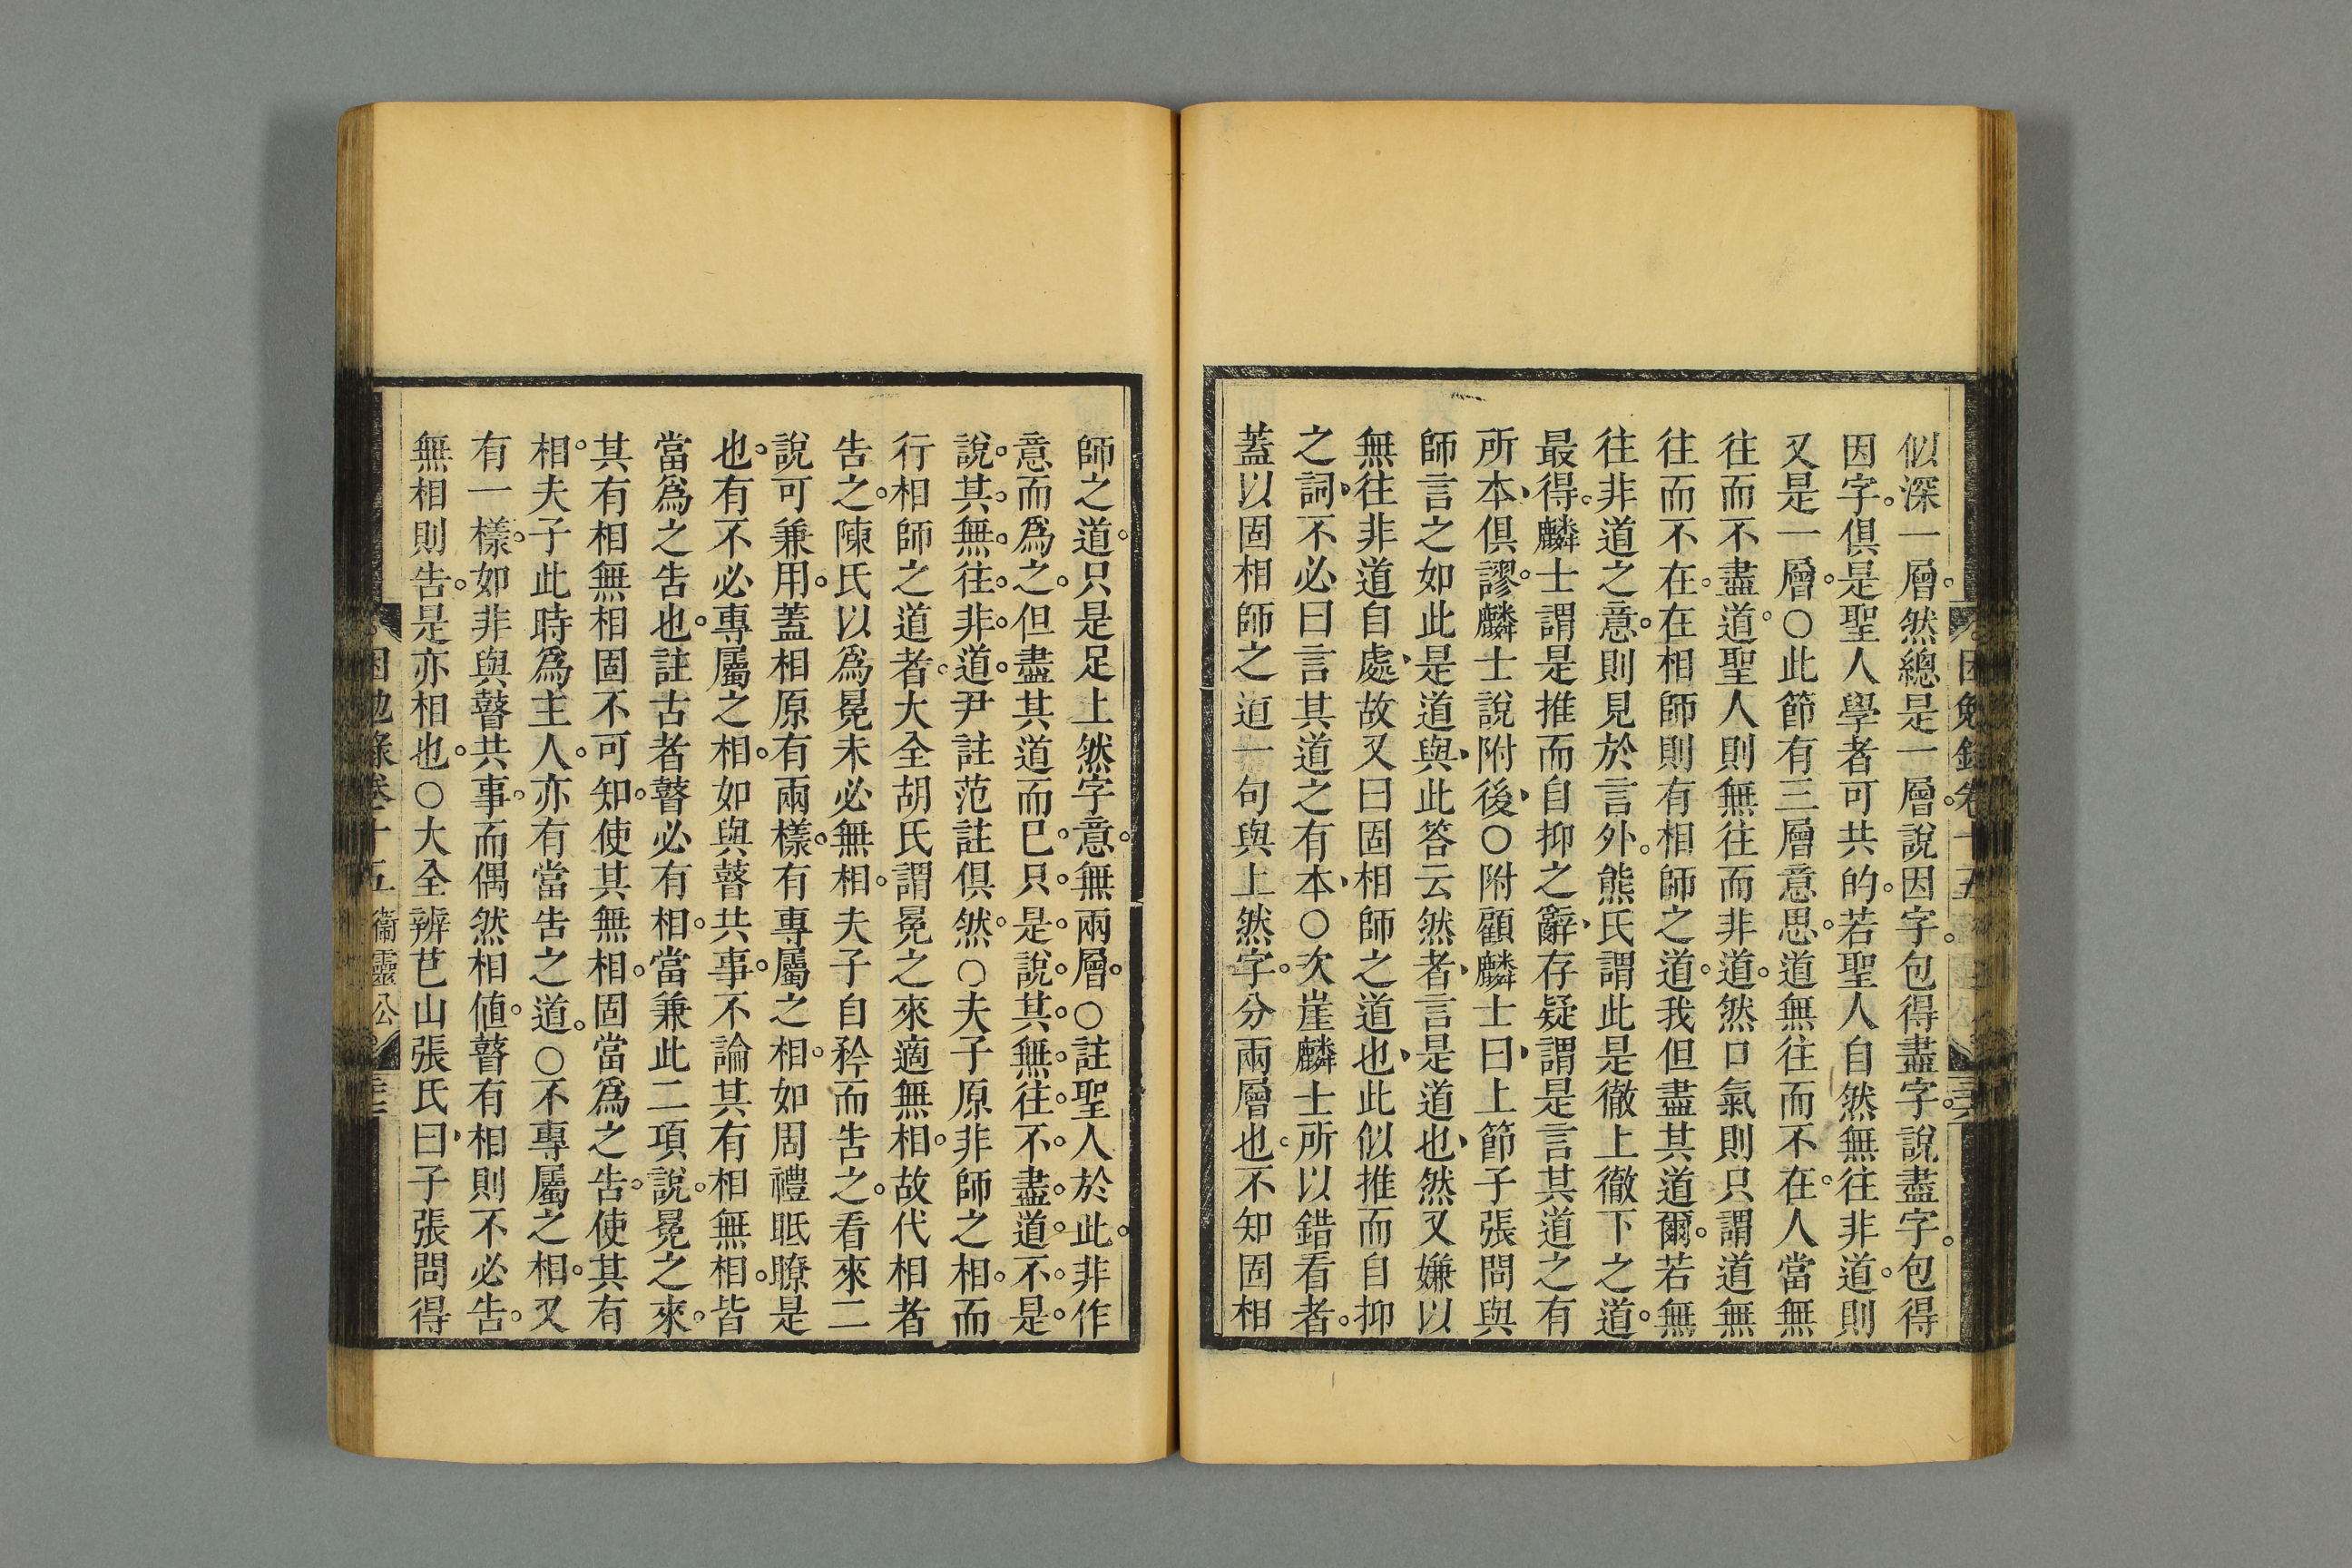 似深一層。然總是一層。說因字。包得盡字。說盡字。包得
因字。俱是聖人學者可共的。若聖人自然無往非道。則
又是一層。○此節有三層意思。道無往而不在。人當無
往而不盡道。聖人則無往而非道。然口氣則只謂道無
往而不在。在相師則有相師之道。我但盡其道爾。若無
往非道之意。則見於言外。熊氏謂此是徹上徹下之道。
最得。麟士謂是推而自抑之辭、存疑謂是言其道之有
所本、俱謬。麟士說附後、○附顧麟士曰、上節子張問與
師言之如此是道與、此答云然者、言是道也、然又嫌以
無往非道自處、故又曰固相師之道也、此似推而自抑
之詞、不必曰言其道之有本、○次崖麟士所以錯看者。
蓋以固相師之道一句與上然字。分兩層也。不知固相
因勉錄卷十五
師之道。只是足上然字意。無兩層。○註聖人於此。非作
意而爲之。但盡其道而已。只是說其無往不盡道。不是
說其無往非道。尹註范註俱然。○夫子原非師之相。而
行相師之道者。大全胡氏謂冕之來適無相。故代相者
告之。陳氏以爲冕未必無相。夫子自矜而告之。看來二
說可兼用。蓋相原有兩樣。有專屬之相。如周禮眡瞭是
也。有不必專屬之相。如與瞽共事。不論其有相無相。皆
當爲之告也。註古者瞽必有相。當兼此二項說。冕之來。
其有相無相固不可知。使其無相。固當爲之告。使其有
相。夫子此時爲主人。亦有當告之道。○不專屬之相。又
有一樣。如非與瞽共事。而偶然相値。瞽有相則不必告。
無相則告。是亦相也。○大全辨芑山張氏曰、子張問得
困勉錄卷十五 衞靈公